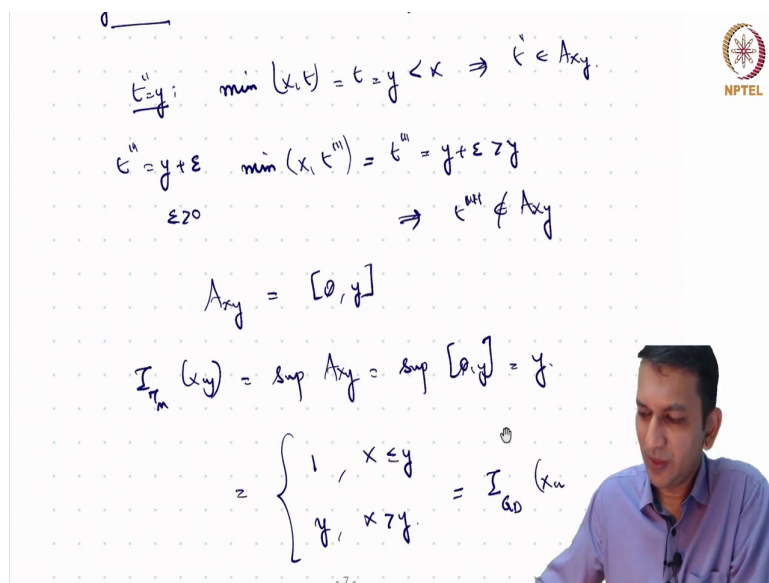 t''=y: min (x,t) = t = y < x ⇒ t'' ∈ Axy.
NPTEL
t''' = y+ε min (x, t''') = t''' = y+ε > y
ε>0 ⇒ t''' ∉ Axy
Axy = [0,y]
I_TM (x,y) = sup Axy = sup [0,y] = y.
= { 1, x ≤ y
y, x > y. = I_GD (x
-7-